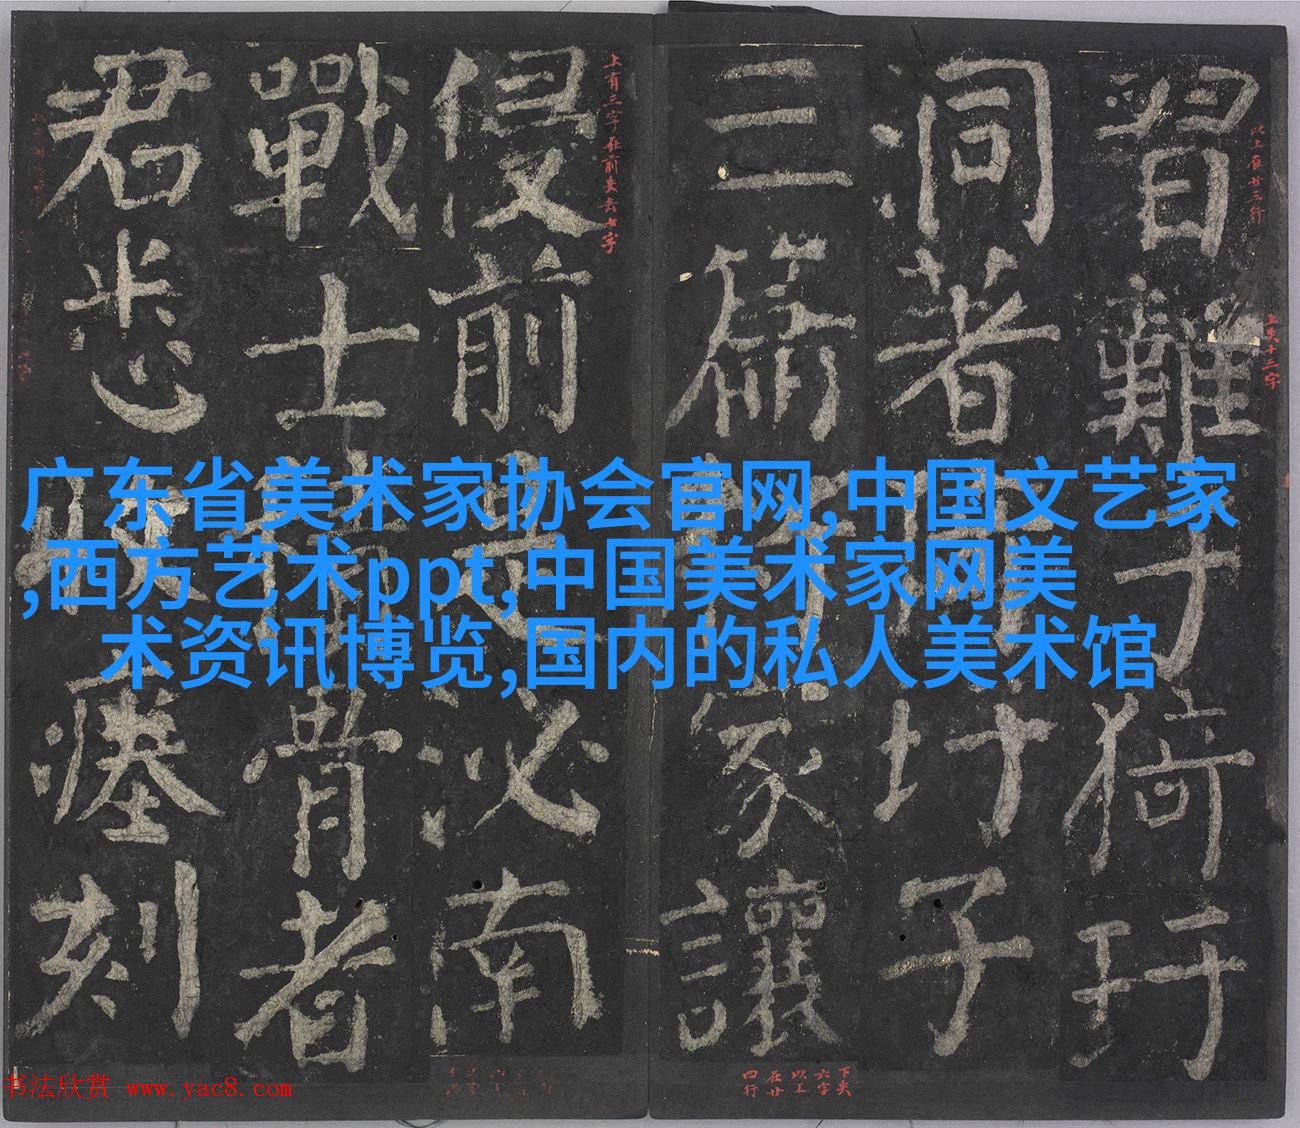 广东省美术家协会官网,中国文艺家
,西方艺术ppt,中国美术家网美
术资讯博览,国内的私人美术馆
習難于猗玗
洞著猗玗子
三篇將家讓
侵前是泌南
戰士積骨者
君悉收瘞刻
以上在廿三行
上失十三字
上有三字在前失去七字
下失
六字
以上
在廿
四行
书法欣赏 www.yac8.com